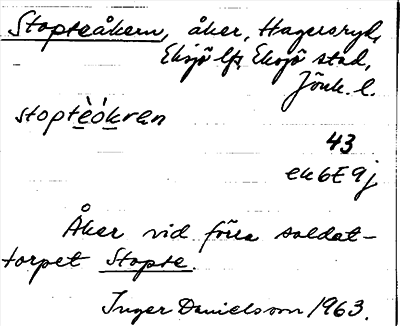 Stopteåkern, åker, Hagersryd,
Eksjö lfs, Eksjö stad,
Jönk. l.
stoptèókran
43
ek6E9j
Åker vid förra soldat-
torpet Stopte.
Inger Danielsson 1963.